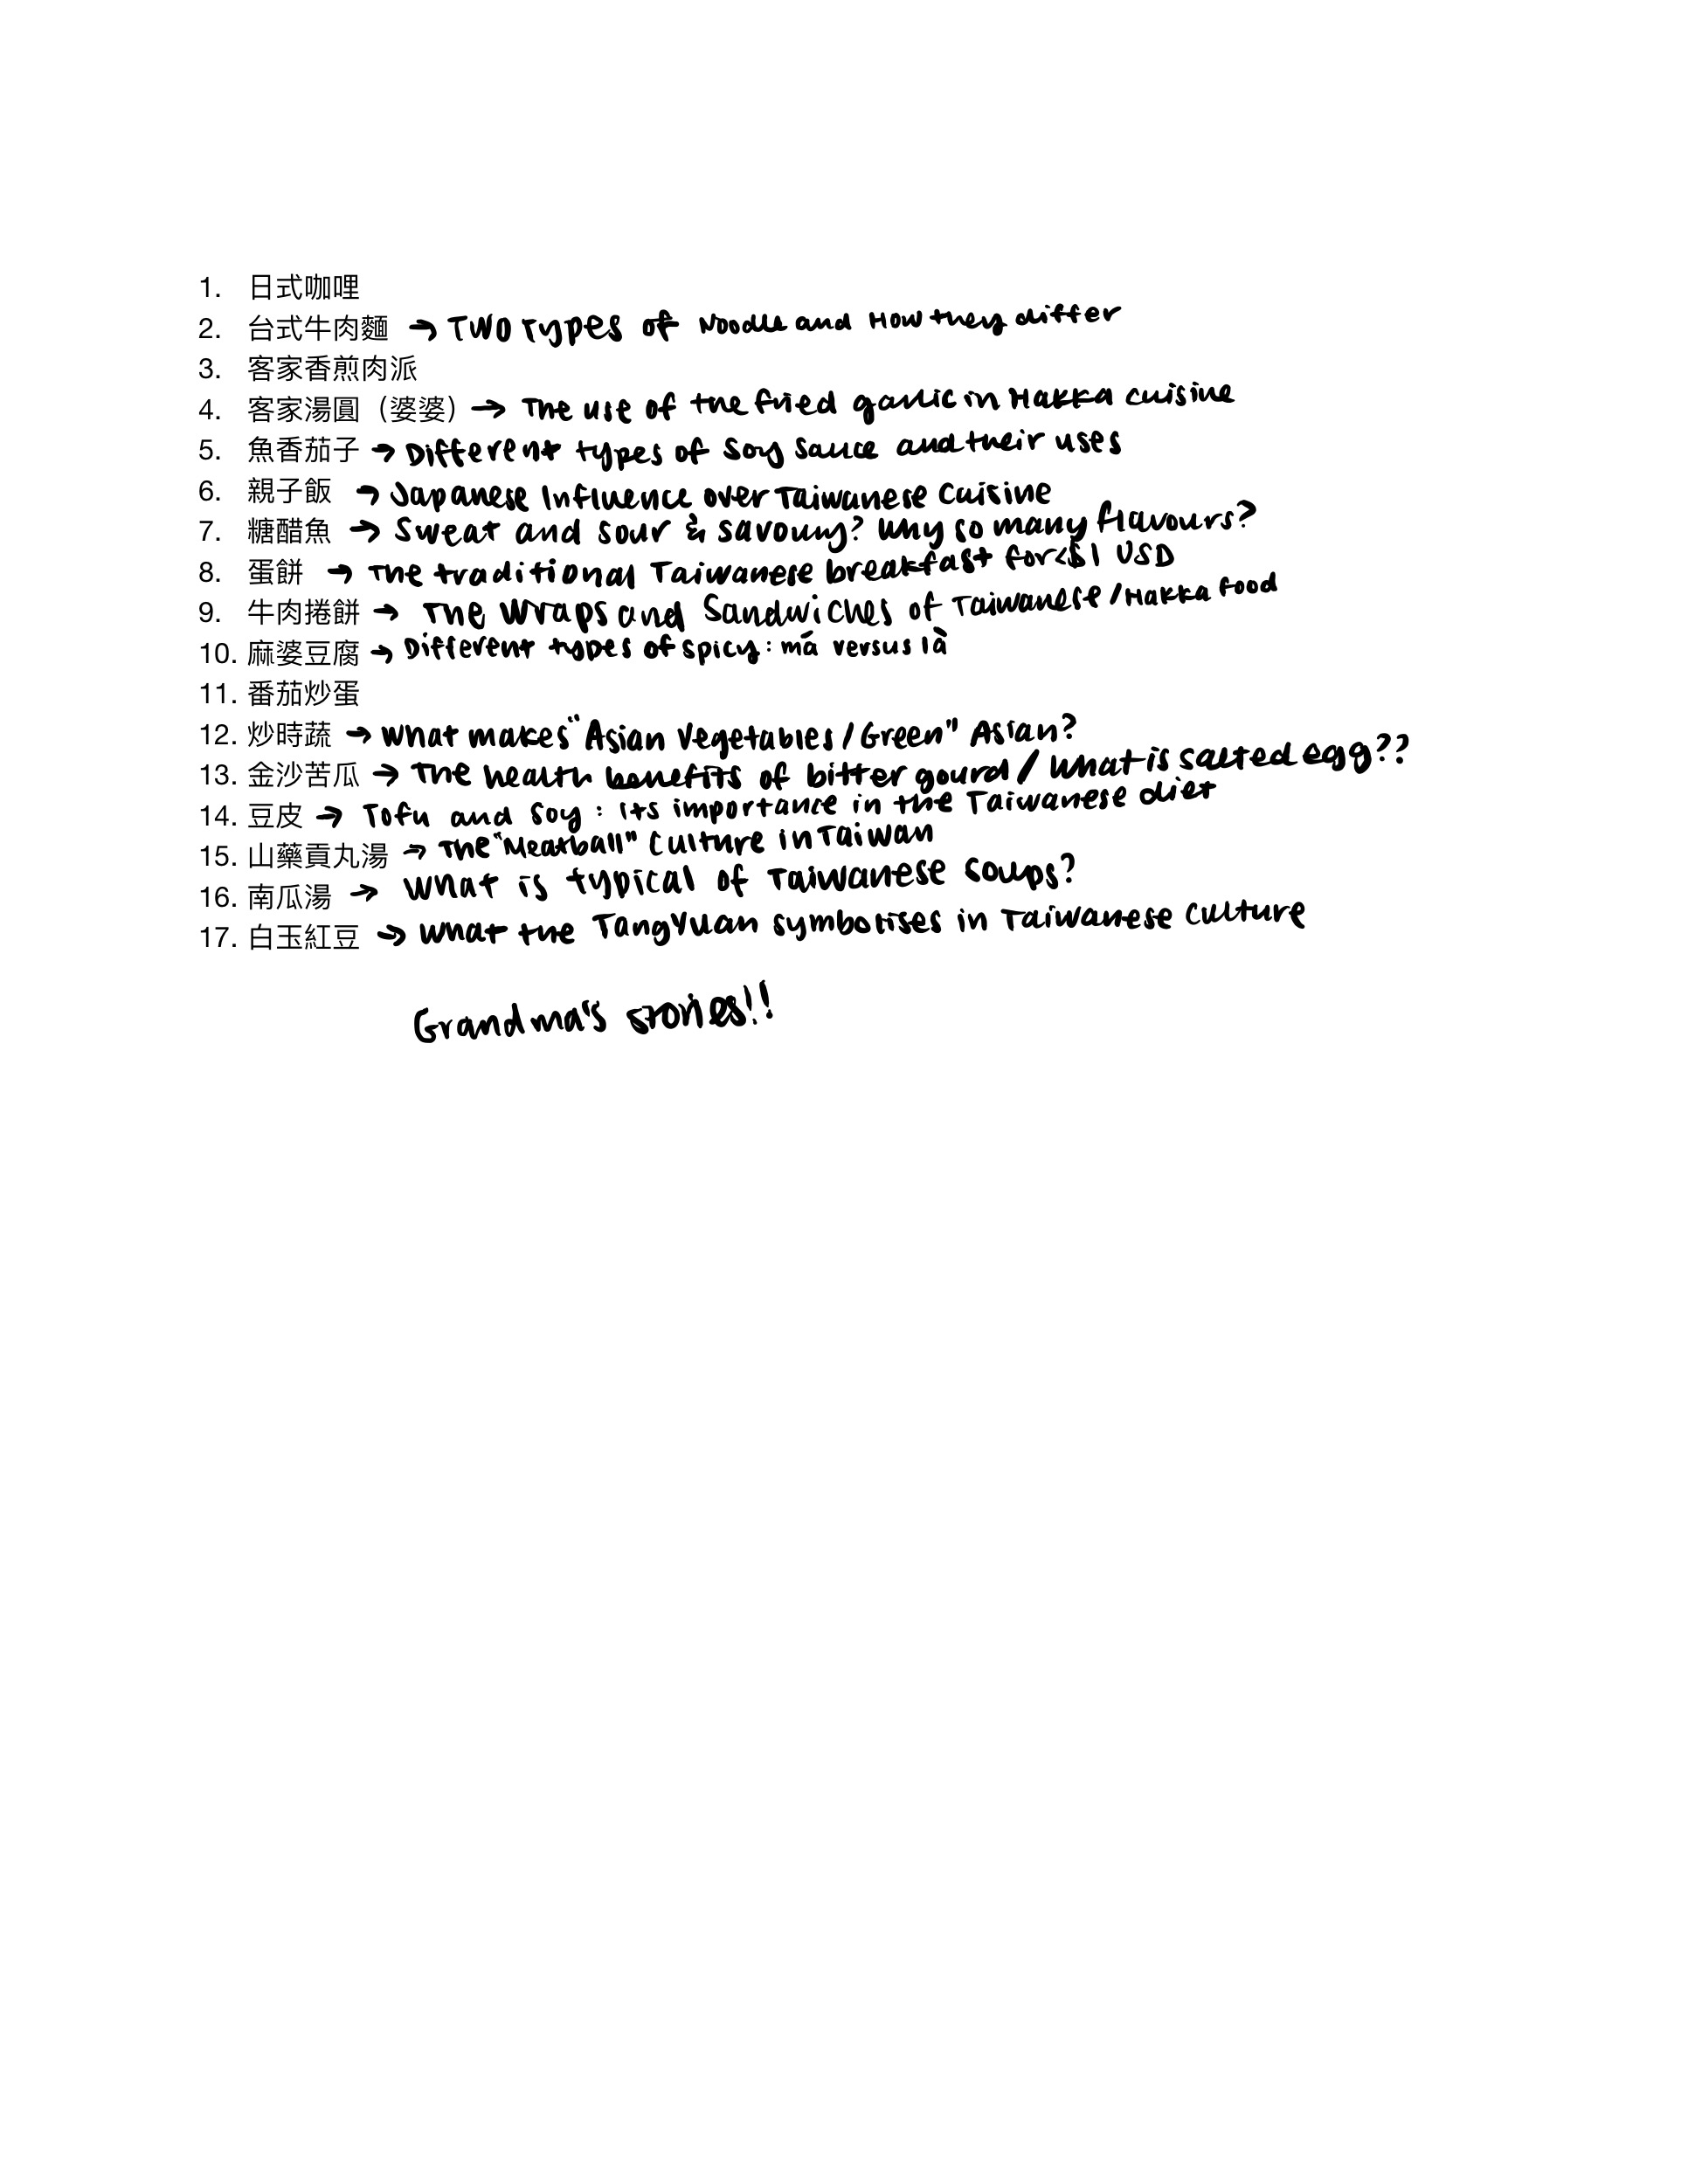 1. 日式咖哩
2. 台式牛肉麵 → Two Types of Noodle and How they differ
3. 客家香煎肉派
4. 客家湯圓（婆婆） → The use of the fried garlic in Hakka cuisine
5. 魚香茄子 → Different types of Soy Sauce and their uses
6. 親子飯 → Japanese Influence over Taiwanese Cuisine
7. 糖醋魚 → Sweat and sour & savoury? Why so many flavours?
8. 蛋餅 → The traditional Taiwanese breakfast for <$1 USD
9. 牛肉捲餅 → The Wraps and Sandwiches of Taiwanese/Hakka food
10. 麻婆豆腐 → Different types of spicy: má versus là
11. 番茄炒蛋
12. 炒時蔬 → What makes "Asian Vegetables/Green" Asian?
13. 金沙苦瓜 → The health benefits of bitter gourd / What is salted egg??
14. 豆皮 → Tofu and Soy: Its importance in the Taiwanese diet
15. 山藥貢丸湯 → The "Meatball" Culture in Taiwan
16. 南瓜湯 → What is typical of Taiwanese Soups?
17. 白玉紅豆 → What the TangYuan symbolises in Taiwanese Culture
Grandma's stories!!